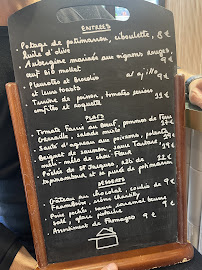 ENTREES
Potage de patimarron, ciboulette, 8 €
huile d'olive
Aubergine marinée aux oignons rouges,
œuf BIO mollet 9 €
Pleurotes et Brocolis al ajillo
et leurs toasts 9 €
Terrine de poisson, tomates cerises
confites et roquette 11 €
PLATS
Tomate Farcie au Bœuf, pommes de Terre
Grenaille, salade multi 22 €
Sauté d'agneau aux poivrons, polenta
Beignet de saumon, sauce Tartare
méli-mélo de chou Fleur
Poêlée de St Jacques, riz de 22 €
topinambour et sa purée de patimarron
DESSERTS
Gâteau au chocolat, coulis de 9 €
Framboise, crème chantilly
Poire pochée, sauce caramel beurre
salé, glace pistache 9 €
Assortiment de Fromages 9 €